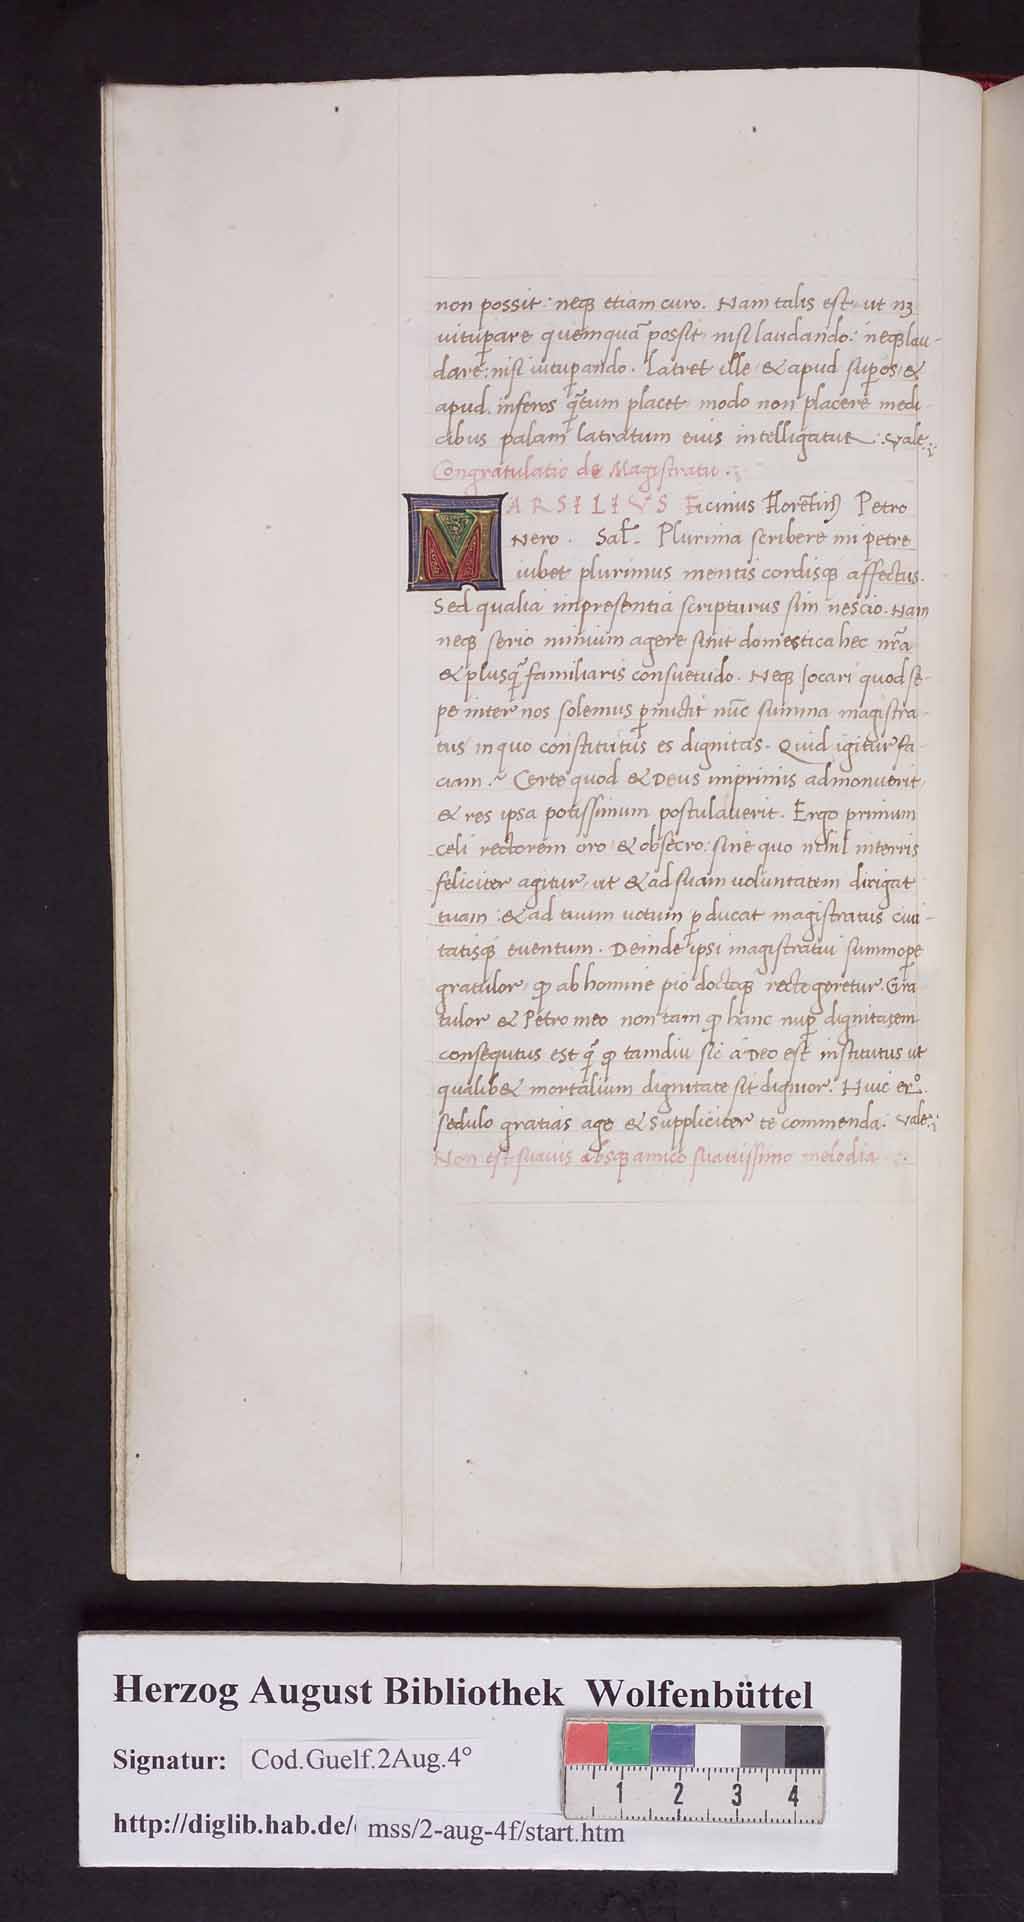 non possit: neq꜒ etiam curo. Nam talis est ut nꝫ
uituꝑare quemquā possit nisi laudando: neq꜒ lau-
dare: nisi uituꝑando. Latret ille & apud suꝑos &
apud inferos q̄tum placet modo non placere medi
cibus palam latratum eius intelligatur. Vale
Congratulatio de Magistratu.
MARSILIVS Ficinus Florētin⁹ Petro
Nero. Sal̄. Plurima scribere mi petre
iubet plurimus mentis cordisq꜒ affectus.
Sed qualia inpresentia scripturus sim nescio. Nam
neq꜒ serio nimium agere sinit domestica hec nr̄a
& plusq̄ familiaris consuetudo. Neq꜒ Jocari quod se-
pe inter nos solemus ꝑmictit nūc summa magistra-
tus in quo constitutus es dignitas. Quid igitur fa-
ciam? Certe quod & Deus imprimis admonuerit
& res ipsa potissimum postulauerit. Ergo primum
celi rectorem oro & obsecro: sine quo nihil interris
feliciter agitur, ut & ad suam uoluntatem dirigat
tuam: & ad tuum uotum ꝑducat magistratus ciui-
tatisq꜒ euentum. Deinde ipsi magistratui summoꝑe
gratulor, ꝙ ab homine pio doctoq꜒ recte geretur. Gra
tulor & Petro meo non tam ꝙ hanc nuꝑ dignitatem
consequtus est q̄ ꝙ tamdiu sic a Deo est institutus ut
qualib& mortalium dignitate sit dignior. Huic er°
sedulo gratias age & suppliciter te commenda. Vale
Non est suauis absq꜒ amico suauissimo melodia
Herzog August Bibliothek Wolfenbüttel
Signatur: Cod.Guelf.2Aug.4°
http://diglib.hab.de/ mss/2-aug-4f/start.htm
1 2 3 4